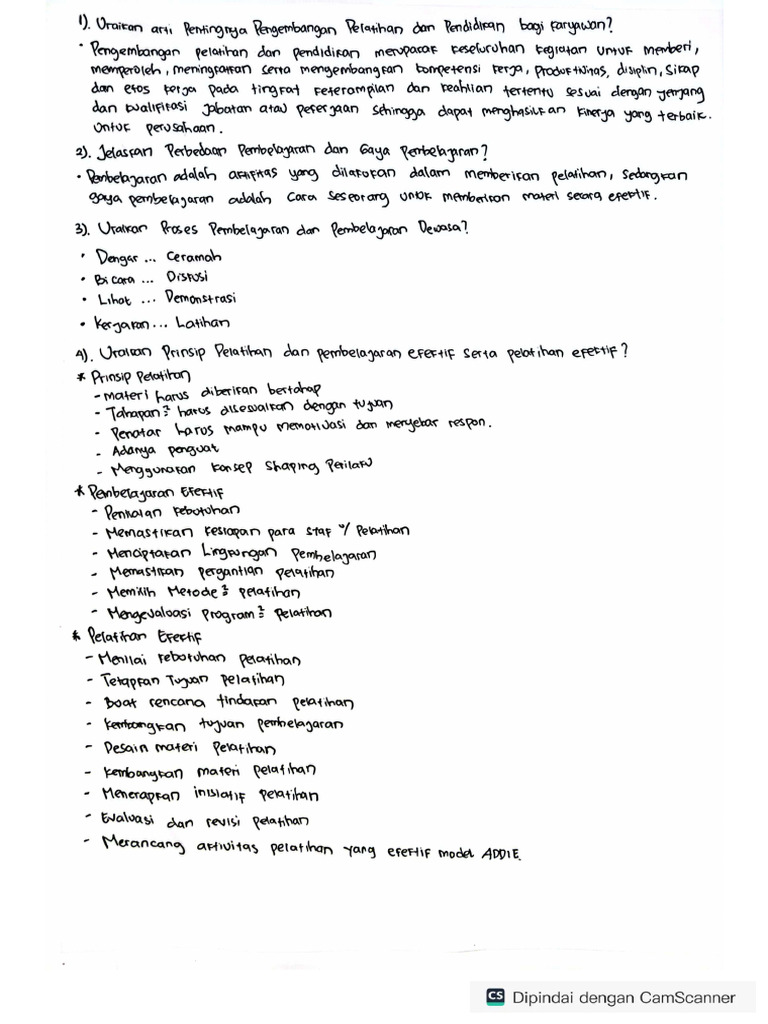 1). Uraikan arti Pentingnya Pengembangan Pelatihan dan Pendidikan bagi karyawan?
• Pengembangan pelatihan dan pendidikan merupakan keseluruhan kegiatan untuk memberi,
memperoleh, meningkatkan serta mengembangkan kompetensi kerja, produktivitas, disiplin, sikap
dan etos kerja pada tingkat keterampilan dan keahlian tertentu sesuai dengan jenjang
dan kualifikasi jabatan atau pekerjaan sehingga dapat menghasilkan kinerja yang terbaik.
untuk perusahaan.
2). Jelaskan Perbedaan Pembelajaran dan Gaya Pembelajaran?
• Pembelajaran adalah aktifitas yang dilakukan dalam memberikan pelatihan, sedangkan
gaya pembelajaran adalah cara seseorang untuk memberikan materi secara efektif.
3). Uraikan Proses Pembelajaran dan Pembelajaran Dewasa?
• Dengar ... Ceramah
• Bicara ... Diskusi
• Lihat ... Demonstrasi
• Kerjakan ... Latihan
4). Uraikan Prinsip Pelatihan dan pembelajaran efektif serta pelatihan efektif?
* Prinsip Pelatihan
- materi harus diberikan bertahap
- Tahapan² harus disesuaikan dengan tujuan
- Penatar harus mampu memotivasi dan menyebar respon.
- Adanya penguat
- Menggunakan konsep shaping Perilaku
* Pembelajaran Efektif
- Penilaian kebutuhan
- Memastikan kesiapan para staf u/ Pelatihan
- Menciptakan Lingkungan Pembelajaran
- Memastikan pergantian pelatihan
- Memilih Metode² pelatihan
- Mengevaluasi program² Pelatihan
* Pelatihan Efektif
- Menilai kebutuhan pelatihan
- Tetapkan Tujuan pelatihan
- Buat rencana tindakan pelatihan
- kembangkan tujuan pembelajaran
- Desain materi Pelatihan
- kembangkan materi pelatihan
- Menerapkan inisiatif pelatihan
- Evaluasi dan revisi pelatihan
- Merancang aktivitas pelatihan yang efektif model ADDIE.
CS Dipindai dengan CamScanner